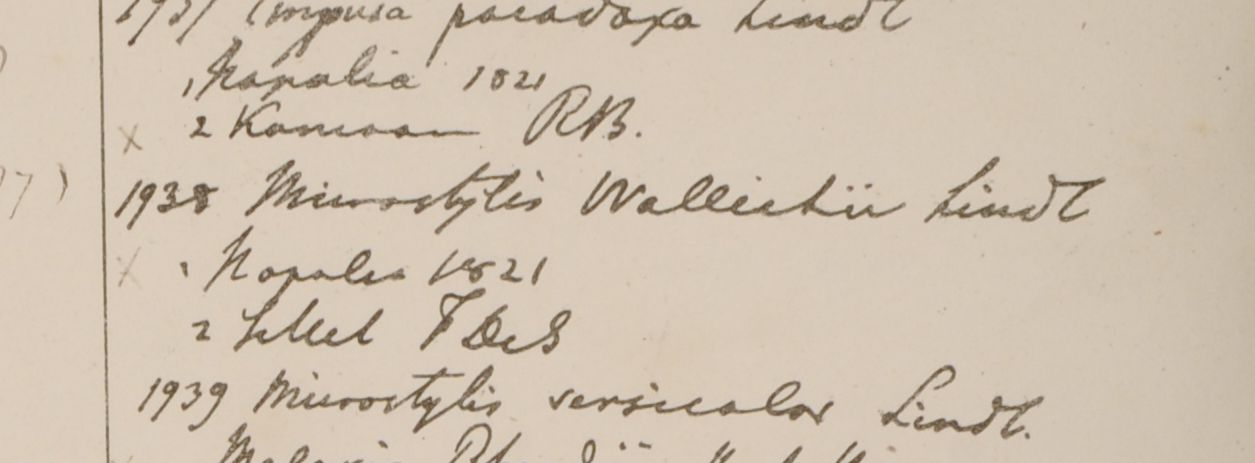 1937 Empusa paradoxa Lindl
1 Napalia 1821
x 2 Kamaon RB.
1938 Microstylis Wallichii Lindl
x 1 Napalia 1821
2 Silhet FDeS
1939 Microstylis versicolor Lindl.